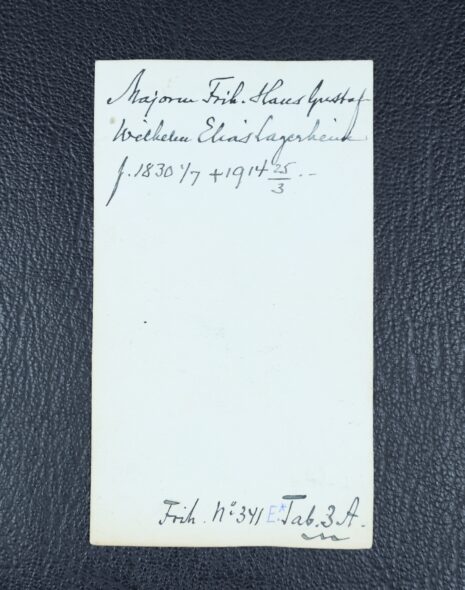 Majoren Frih. Hans Gustaf
Wilhelm Elias Lagerheim
f. 1830 1/7 +1914 25/3 .-
Frih. No 341 E* Tab. 3 A.